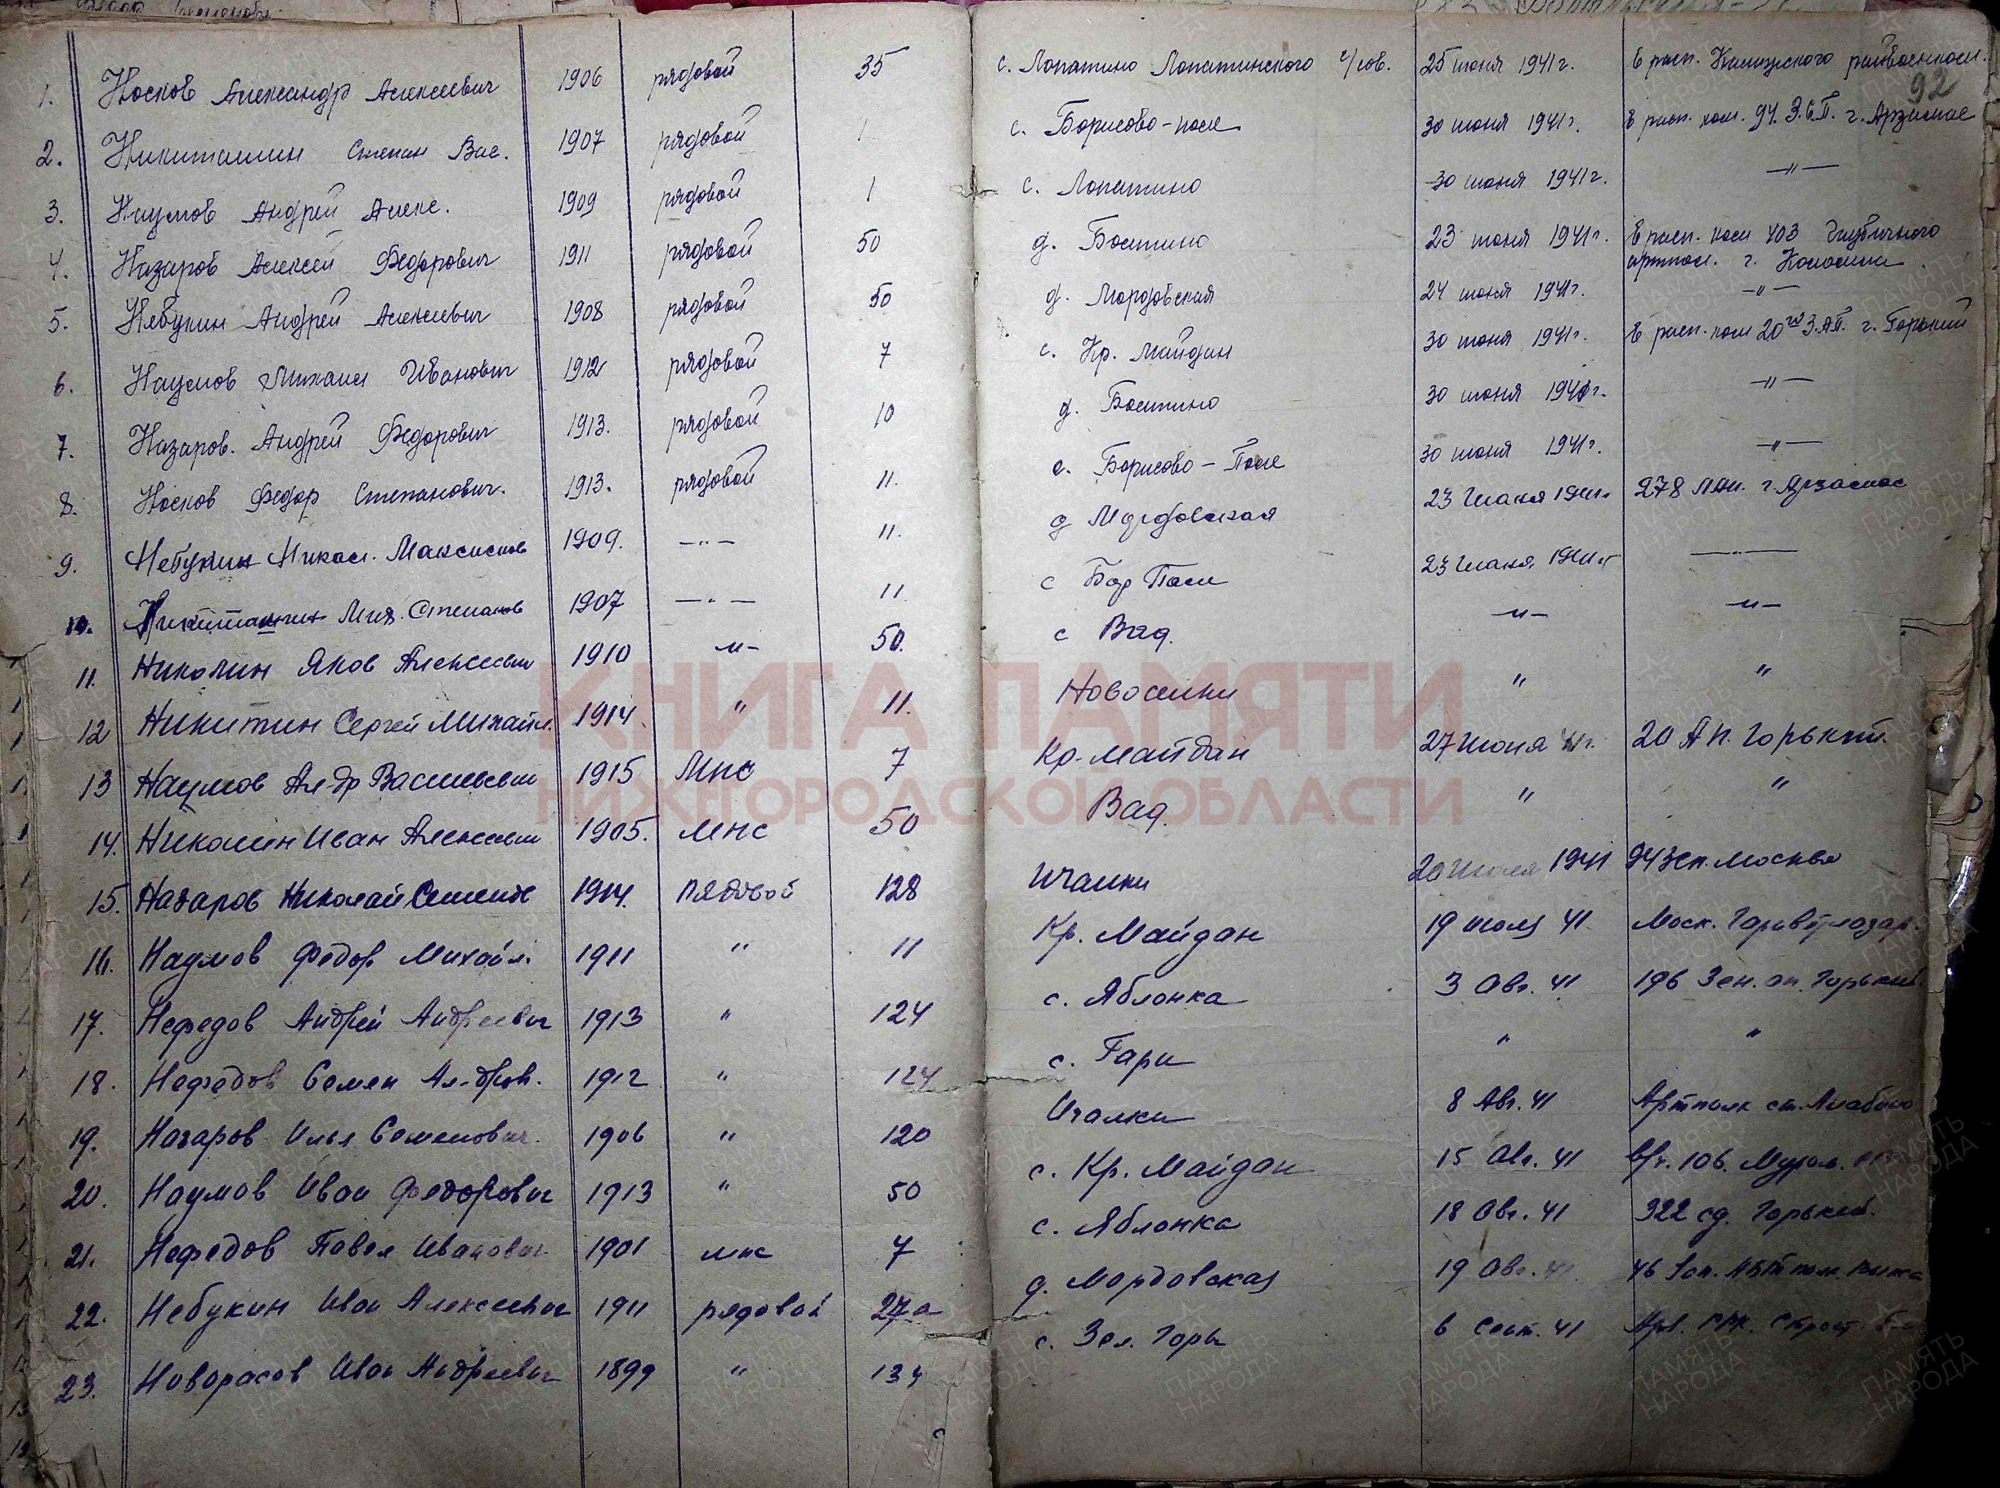 92
1. Носков Александр Алексеевич 1906 рядовой 35 с. Лопатино Лопатинского с/сов. 25 июня 1941 г. В расп. райвоенком.
2. Никиташин Степан Вас. 1907 рядовой 1 с. Борисово-поле 30 июня 1941 г. В расп. ком. 94. З.С.П. г. Арзамас
3. Наумов Андрей Алекс. 1909 рядовой 1 с. Лопатино 30 июня 1941 г. —"—
4. Назаров Алексей Федорович 1911 рядовой 50 д. Бостино 23 июня 1941 г. В расп. ком 403
артпол. г. Коломна
5. Небукин Андрей Алексеевич 1908 рядовой 50 д. Мордовская 24 июня 1941 г. —"—
6. Наумов Михаил Иванович 1912 рядовой 7 с. Кр. Майдан 30 июня 1941 г. В расп. ком 20го З.А.П. г. Горький
7. Назаров. Андрей Федорович 1913. рядовой 10 д. Бостино 30 июня 1941 г. —"—
8. Носков Федор Степанович. 1913. рядовой 11. с. Борисово-Поле 30 июня 1941 г. —"—
9. Небукин Никол. Максимов 1909. —"— 11. д Мордовская 23 Июня 1941 г 278 г. Арзамас
10. Никиташин Мих. Степанов 1907 —"— 11 с Бор Поле 23 Июня 1941 г —"—
11. Николин Яков Алексеевич 1910 —"— 50. с Вад. —"— —"—
12 Никитин Сергей Михайл. 1914. " 11. Новоселки " "
13 Наумов Ал-др Васильевич 1915 Мнс 7 Кр. Майдан 27 Июня 41 г. 20 А П. Горький.
14. Николин Иван Алексеевич 1905. Мнс 50 Вад. " "
15. Назаров Николай Семенов 1914. рядовой 128 Ичалки 1941 94 Москва
16. Наумов Федор Михайл. 1911 " 11 Кр. Майдан 19 июля 41 Моск.
17. Нефедов Андрей Андреевич 1913 " 124 с. Яблонка 3 Авг. 41 196 Зен. ап. Горький
18. Нефедов Семен Ал-дров. 1912 " 124 с. Гари " "
19. Назаров Илья Семенович. 1906 " 120 Ичалки 8 Авг. 41 Артполк ст.
20. Наумов Иван Федорович 1913 " 50 с. Кр. Майдан 15 Авг. 41 106. Муром.
21. Нефедов Павел Иванович 1901 мнс 7 с. Яблонка 18 Авг. 41 322 сд. Горький.
22. Небукин Иван Алексеевич 1911 рядовой 27а д. Мордовская 19 Авг. 41 46 Зап.
23. Новорасов Иван Андреевич 1899 " 134 с. Зел. Горы 6 Сент. 41
КНИГА ПАМЯТИ
НИЖЕГОРОДСКОЙ ОБЛАСТИ
ПАМЯТЬ НАРОДА